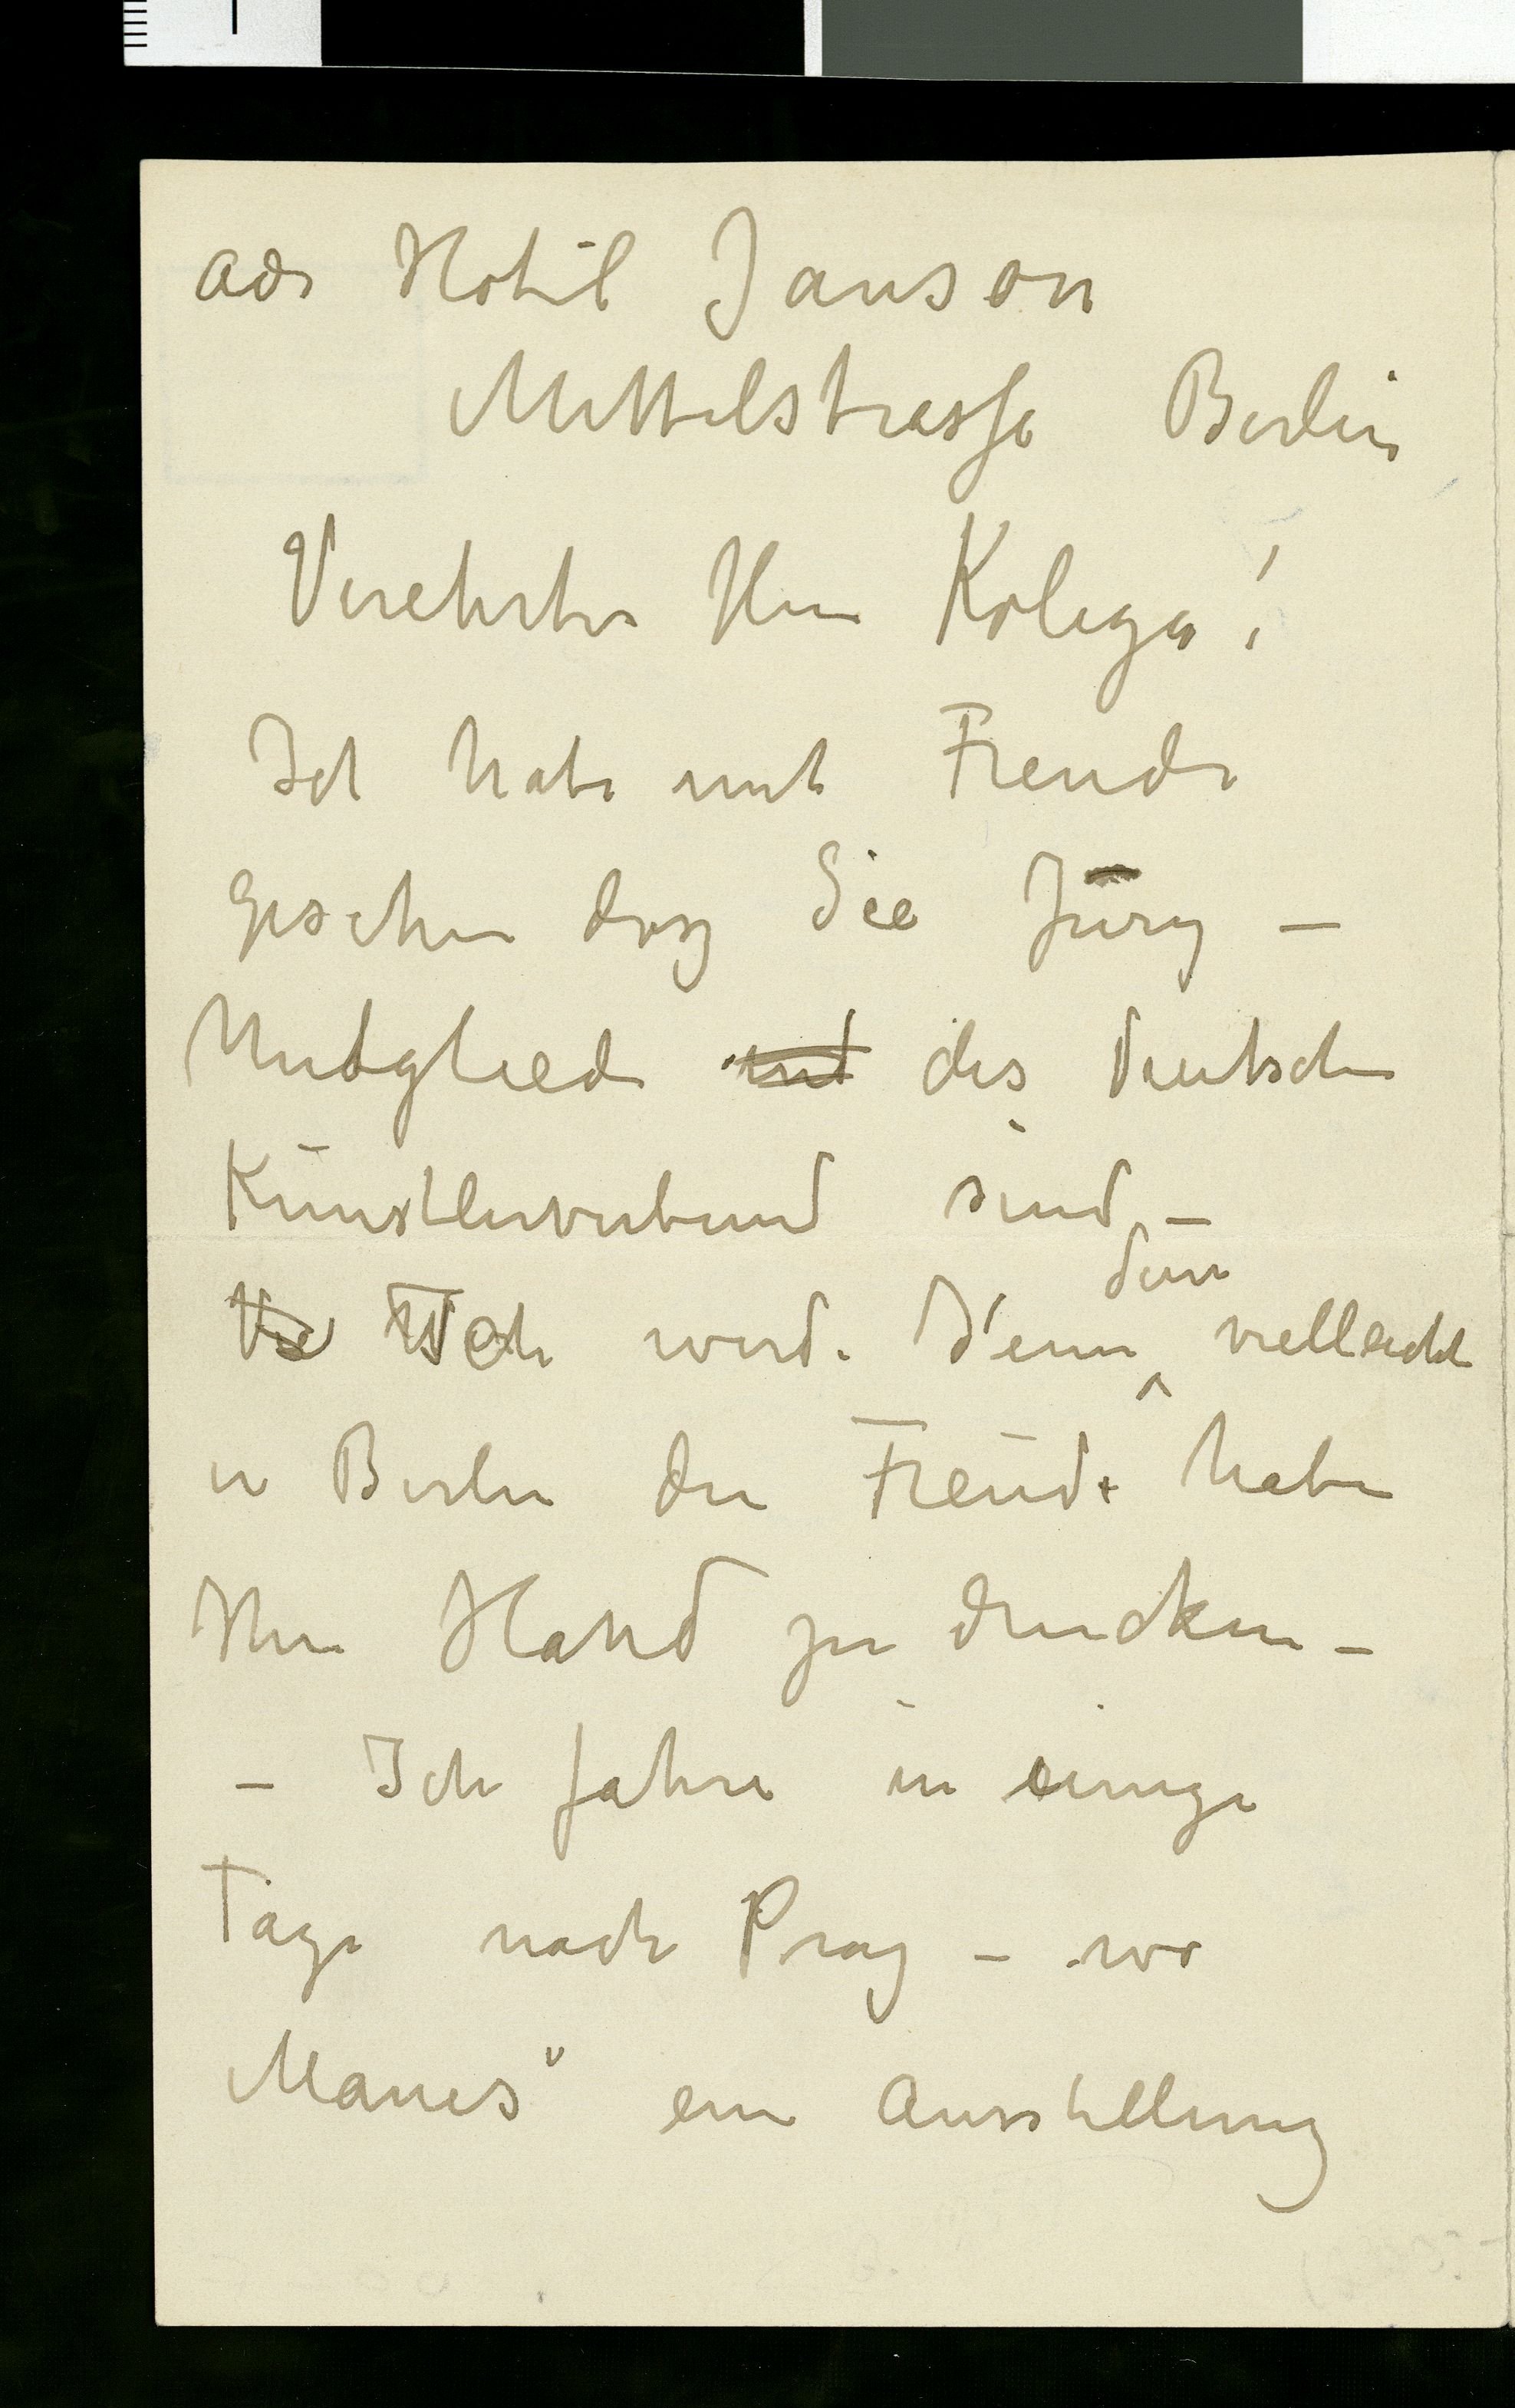 adr Hotel Janson
Mittelstrasse Berlin
Verehrter Herr Kolega!
Ich habe mit Freude
gesehen dasz Sie Jury –
Mitglied mit des Deutschen
Künstlerverbund sind –
Ich werde denn vielleicht
in Berlin die Freude haben
Ihre Hand zu drucken –
– Ich fahre in einige
Tage nach Prag – wo
Manes" eine Ausstellung